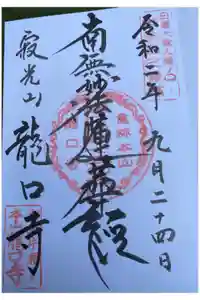 令和二年 九月二十四日
南無妙法蓮華経
寂光山 龍口寺